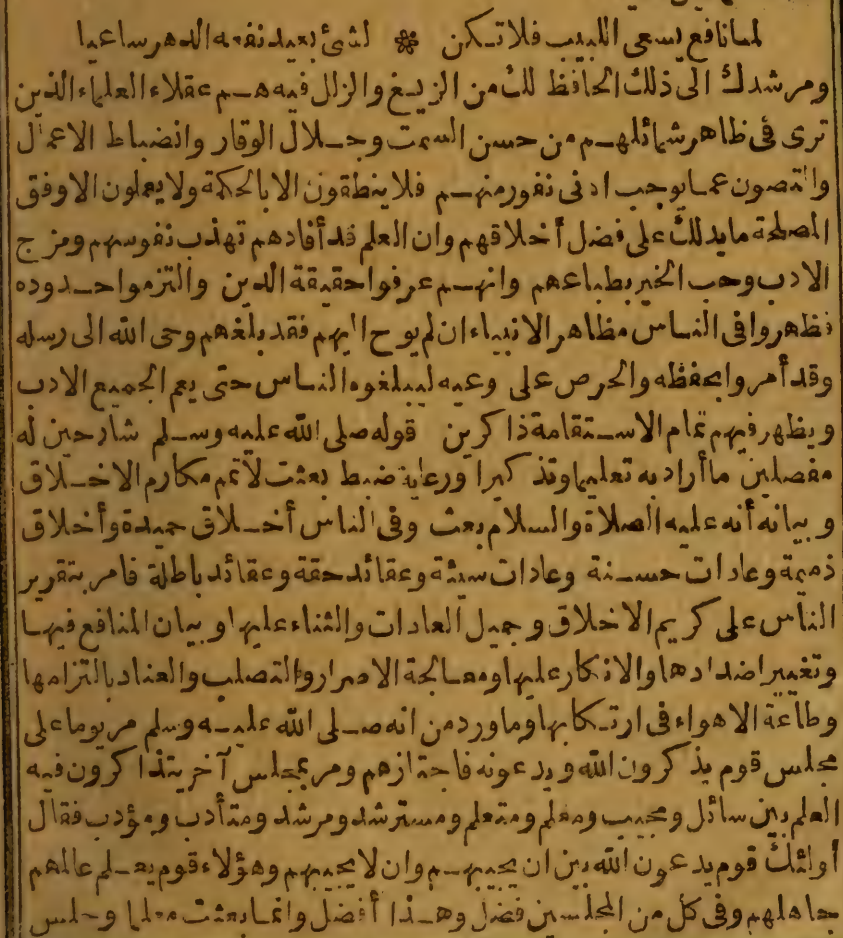 لما نافع يسعى اللبيب فلا تكن * لشئ بعيد نفعه الدهر ساعيا
ومرشدك الى ذلك الحافظ لك من الزيغ والزال فيه هم عقلاء العلماء الذين
ترى فى ظاهر شمائلهم من حسن السمت وجلال الوقار وانضباط الاعمال
والتصون عما يوجب ادنى نفور منهم فلا ينطقون الا بالحكمة ولا يعملون الا وفق
المصلحة ما يدلك على فضل أخلاقهم وان العلم قد أفادهم تهذب نفوسهم ومزج
الادب وحب الخير بطباعهم وانهم عرفوا حقيقة الدين والتزموا حدوده
فظهروا فى الناس مظاهر الانبياء ان لم يوح اليهم فقد بلغهم وحى الله الى رسله
وقد أمروا بحفظه والحرص على وعيه ليبلغوه الناس حتى يعم الجميع الادب
ويظهر فيهم تمام الاستقامة ذاكرين قوله صلى الله عليه وسلم شارحين له
مفصلين ما أراد به تعليما وتذكيرا ورعاية ضبط بعثت لأتمم مكارم الاخلاق
وبيانه أنه عليه الصلاة والسلام بعث وفى الناس أخلاق حميدة وأخلاق
ذميمة وعادات حسنة وعادات سيئة وعقائد حقة وعقائد باطلة فامر بتقرير
الناس على كريم الاخلاق وجميل العادات والثناء عليها وبيان المنافع فيها
وتغيير اضدادها والانكار عليها ومعالجة الاصرار والتصلب والعناد بالتزامها
وطاعة الاهواء فى ارتكابها وما ورد من انه صلى الله عليه وسلم مر يوما على
مجلس قوم يذكرون الله ويدعونه فاجتازهم ومر بمجلس آخر يتذاكرون فيه
العلم بين سائل ومجيب ومعلم ومتعلم ومسترشد ومرشد ومتأدب ومؤدب فقال
أولئك قوم يدعون الله بين ان يجيبهم وان لا يجيبهم وهؤلاء قوم يعلم عالمهم
جاهلهم وفى كل من المجلسين فضل وهذا أفضل وانما بعثت معلما وجلس